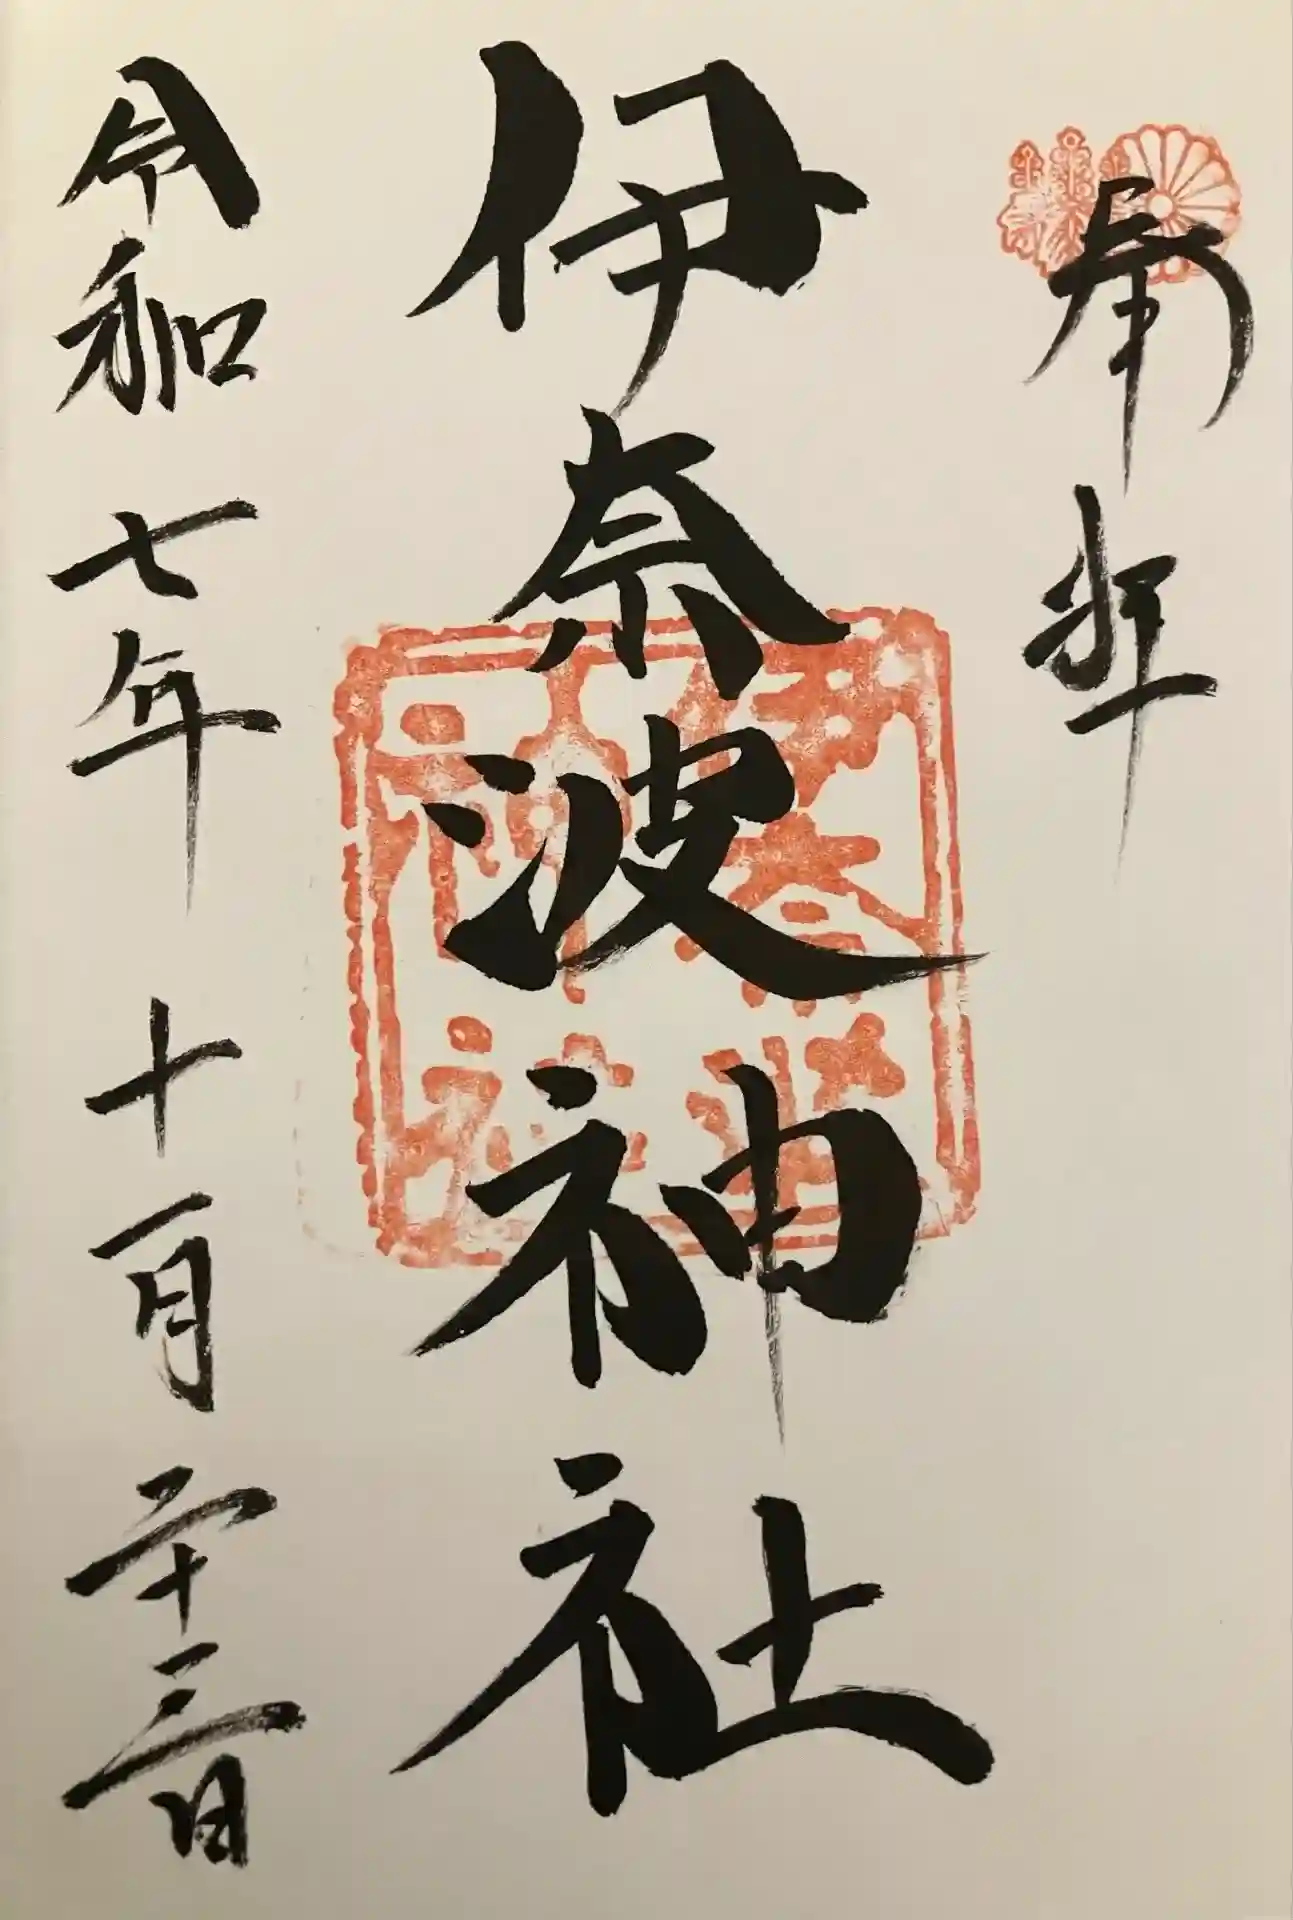 奉拝
伊奈波神社
令和七年十一月二十三日
伊奈波
神社